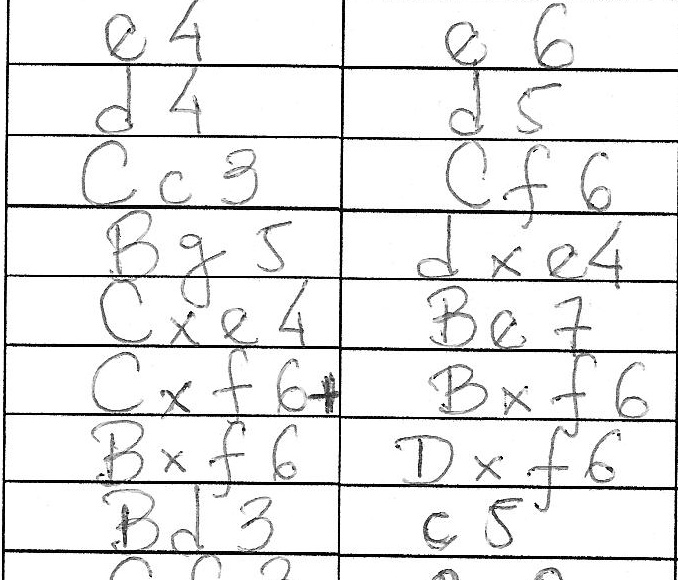 e4 e6
d4 d5
Cc3 Cf6
Bg5 dxe4
Cxe4 Be7
Cxf6+ Bxf6
Bxf6 Dxf6
Bd3 c5